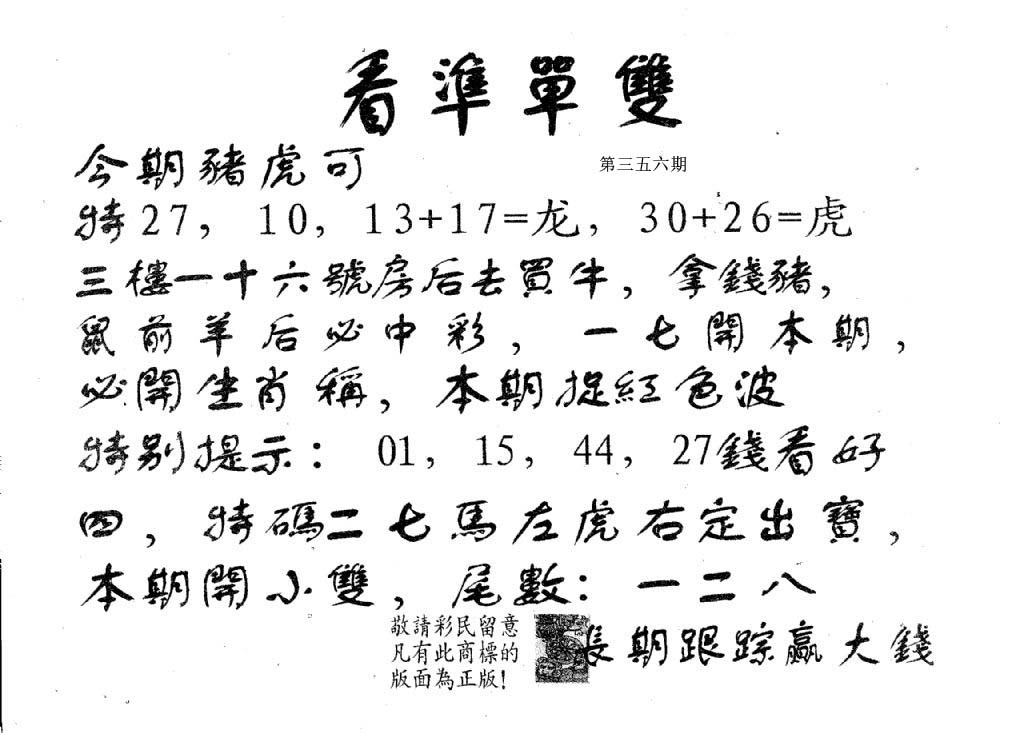 看準單雙
今期豬虎可
第三五六期
特27, 10, 13+17=龙, 30+26=虎
三樓一十六號房后去買牛,拿錢豬,
鼠前羊后必中彩,一七開本期,
必開生肖稱,本期捉紅色波
特别提示: 01, 15, 44, 27錢看好
四,特碼二七馬左虎右定出寶,
本期開小雙,尾數:一二八
敬請彩民留意
凡有此商標的
版面為正版!
長期跟踪赢大錢